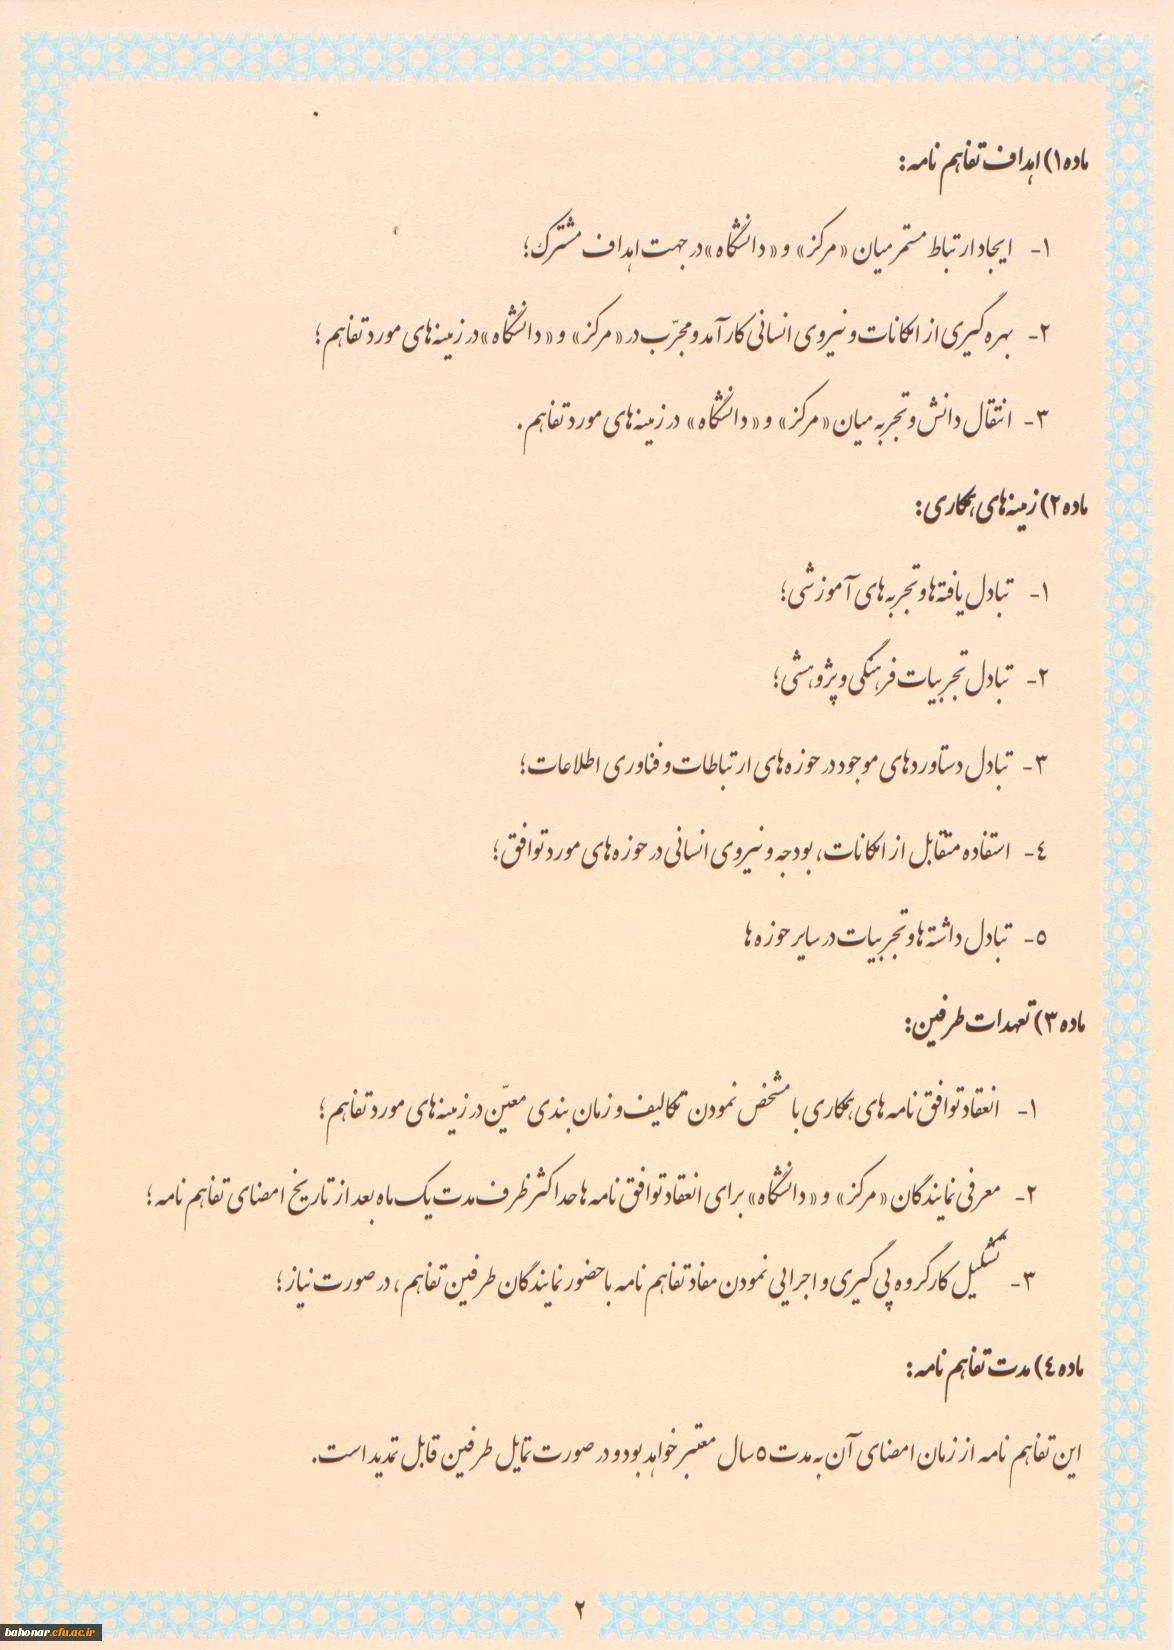 ماده ۱) اهداف تفاهم نامه:
۱- ایجاد ارتباط مستمر میان «مرکز» و «دانشگاه» در جهت اهداف مشترک؛
۲- بهره گیری از امکانات و نیروی انسانی کارآمد و مجرّب در «مرکز» و «دانشگاه» در زمینه های مورد تفاهم؛
۳- انتقال دانش و تجربه میان «مرکز» و «دانشگاه» در زمینه های مورد تفاهم.
ماده ۲) زمینه های همکاری:
۱- تبادل یافته ها و تجربه های آموزشی؛
۲- تبادل تجربیات فرهنگی و پژوهشی؛
۳- تبادل دستاوردهای موجود در حوزه های ارتباطات و فناوری اطلاعات؛
٤- استفاده متقابل از امکانات، بودجه و نیروی انسانی در حوزه های مورد توافق؛
٥- تبادل داشته ها و تجربیات در سایر حوزه ها
ماده ۳) تعهدات طرفین:
۱- انعقاد توافق نامه های همکاری با مشخص نمودن تکالیف و زمان بندی معیّن در زمینه های مورد تفاهم؛
۲- معرفی نمایندگان «مرکز» و «دانشگاه» برای انعقاد توافق نامه ها حداکثر ظرف مدت یک ماه بعد از تاریخ امضای تفاهم نامه؛
۳- تشکیل کارگروه پی گیری و اجرایی نمودن مفاد تفاهم نامه با حضور نمایندگان طرفین تفاهم، در صورت نیاز؛
ماده ٤) مدت تفاهم نامه:
این تفاهم نامه از زمان امضای آن به مدت ٥ سال معتبر خواهد بود و در صورت تمایل طرفین قابل تمدید است.
۲
bahonar.cfu.ac.ir